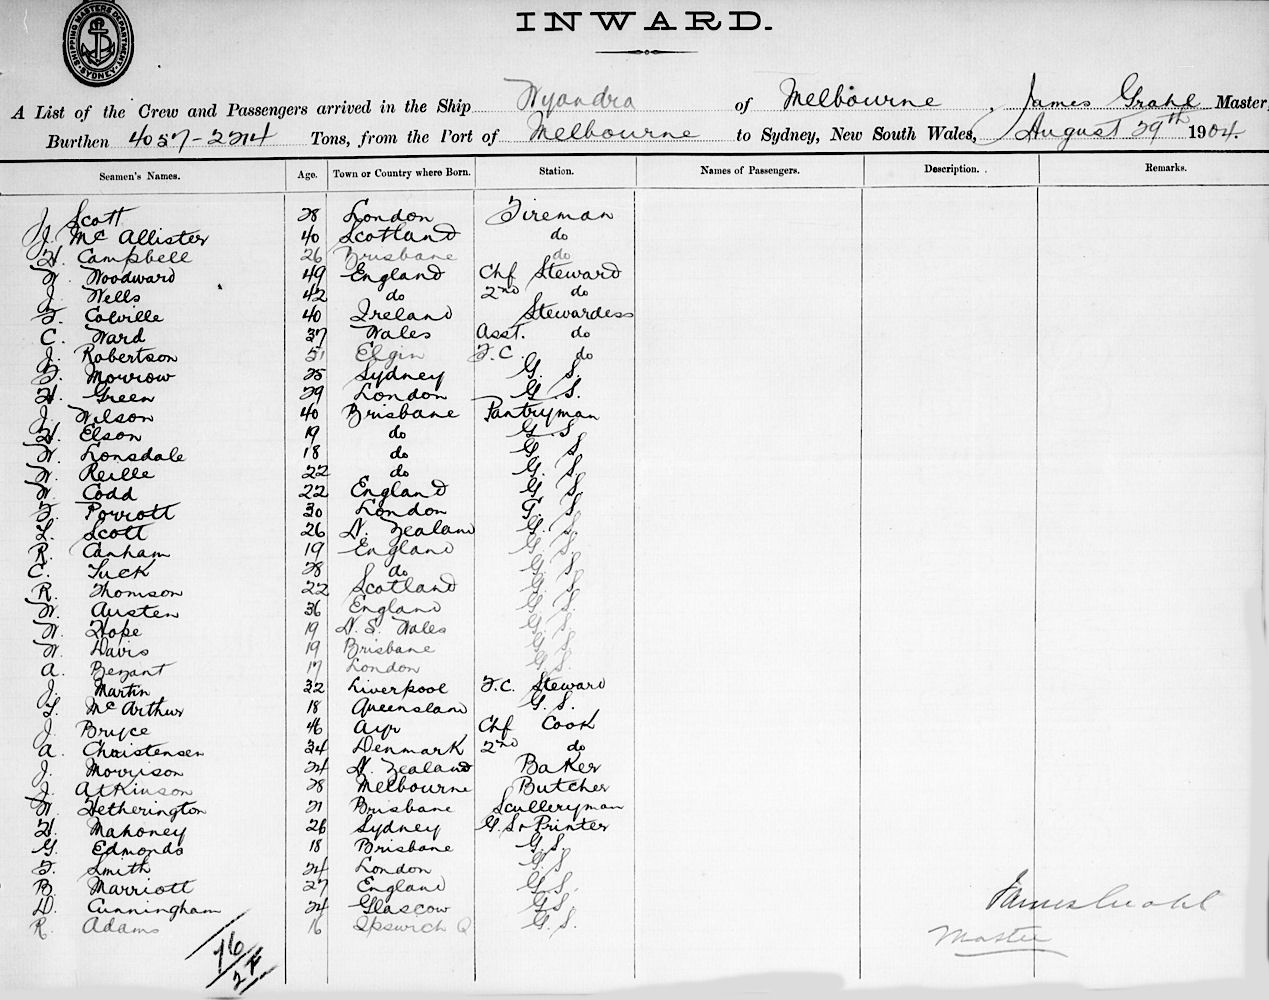 SHIPPING MASTERS DEPARTMENT SYDNEY
INWARD.
A List of the Crew and Passengers arrived in the Ship Wyandra of Melbourne, James Grahl Master,
Burthen 4057-2214 Tons, from the Port of Melbourne to Sydney, New South Wales, August 29th 1904.
Seamen's Names. Age. Town or Country where Born. Station. Names of Passengers. Description. Remarks.
J. Scott 28 London Fireman
J. McAllister 40 Scotland do
H. Campbell 26 Brisbane do
W. Woodward 49 England Chf Steward
J. Wells 42 do 2nd do
F. Colville 40 Ireland Stewardess
C. Ward 37 Wales Asst. do
J. Robertson 51 Elgin F.C. do
F. Morrow 25 Sydney G. S.
H. Green 29 London G. S.
J. Wilson 40 Brisbane Pantryman
H. Elson 19 do G. S.
W. Lonsdale 18 do G. S.
W. Reille 22 do G. S.
W. Codd 22 England G. S.
F. Porriott 30 London G. S.
L. Scott 26 N. Zealand G. S.
R. Canham 19 England G. S.
C. Tuck 28 do G. S.
R. Thomson 22 Scotland G. S.
W. Austen 36 England G. S.
W. Hope 19 N. S. Wales G. S.
W. Davis 19 Brisbane G. S.
A. Bezant 17 London G. S.
J. Martin 32 Liverpool F.C. Steward
L. McArthur 18 Queensland G. S.
J. Bryce 46 Ayr Chf Cook
A. Christensen 34 Denmark 2nd do
J. Morrison 24 N. Zealand Baker
J. Atkinson 28 Melbourne Butcher
W. Hetherington 21 Brisbane Sculleryman
H. Mahoney 26 Sydney G. S & Printer
G. Edmonds 18 Brisbane G. S.
F. Smith 24 London G. S.
B. Marriott 27 England G. S.
D. Cunningham 24 Glascow G. S.
R. Adams 16 Ipswich Q G. S.
James Grahl
Master
76
2F